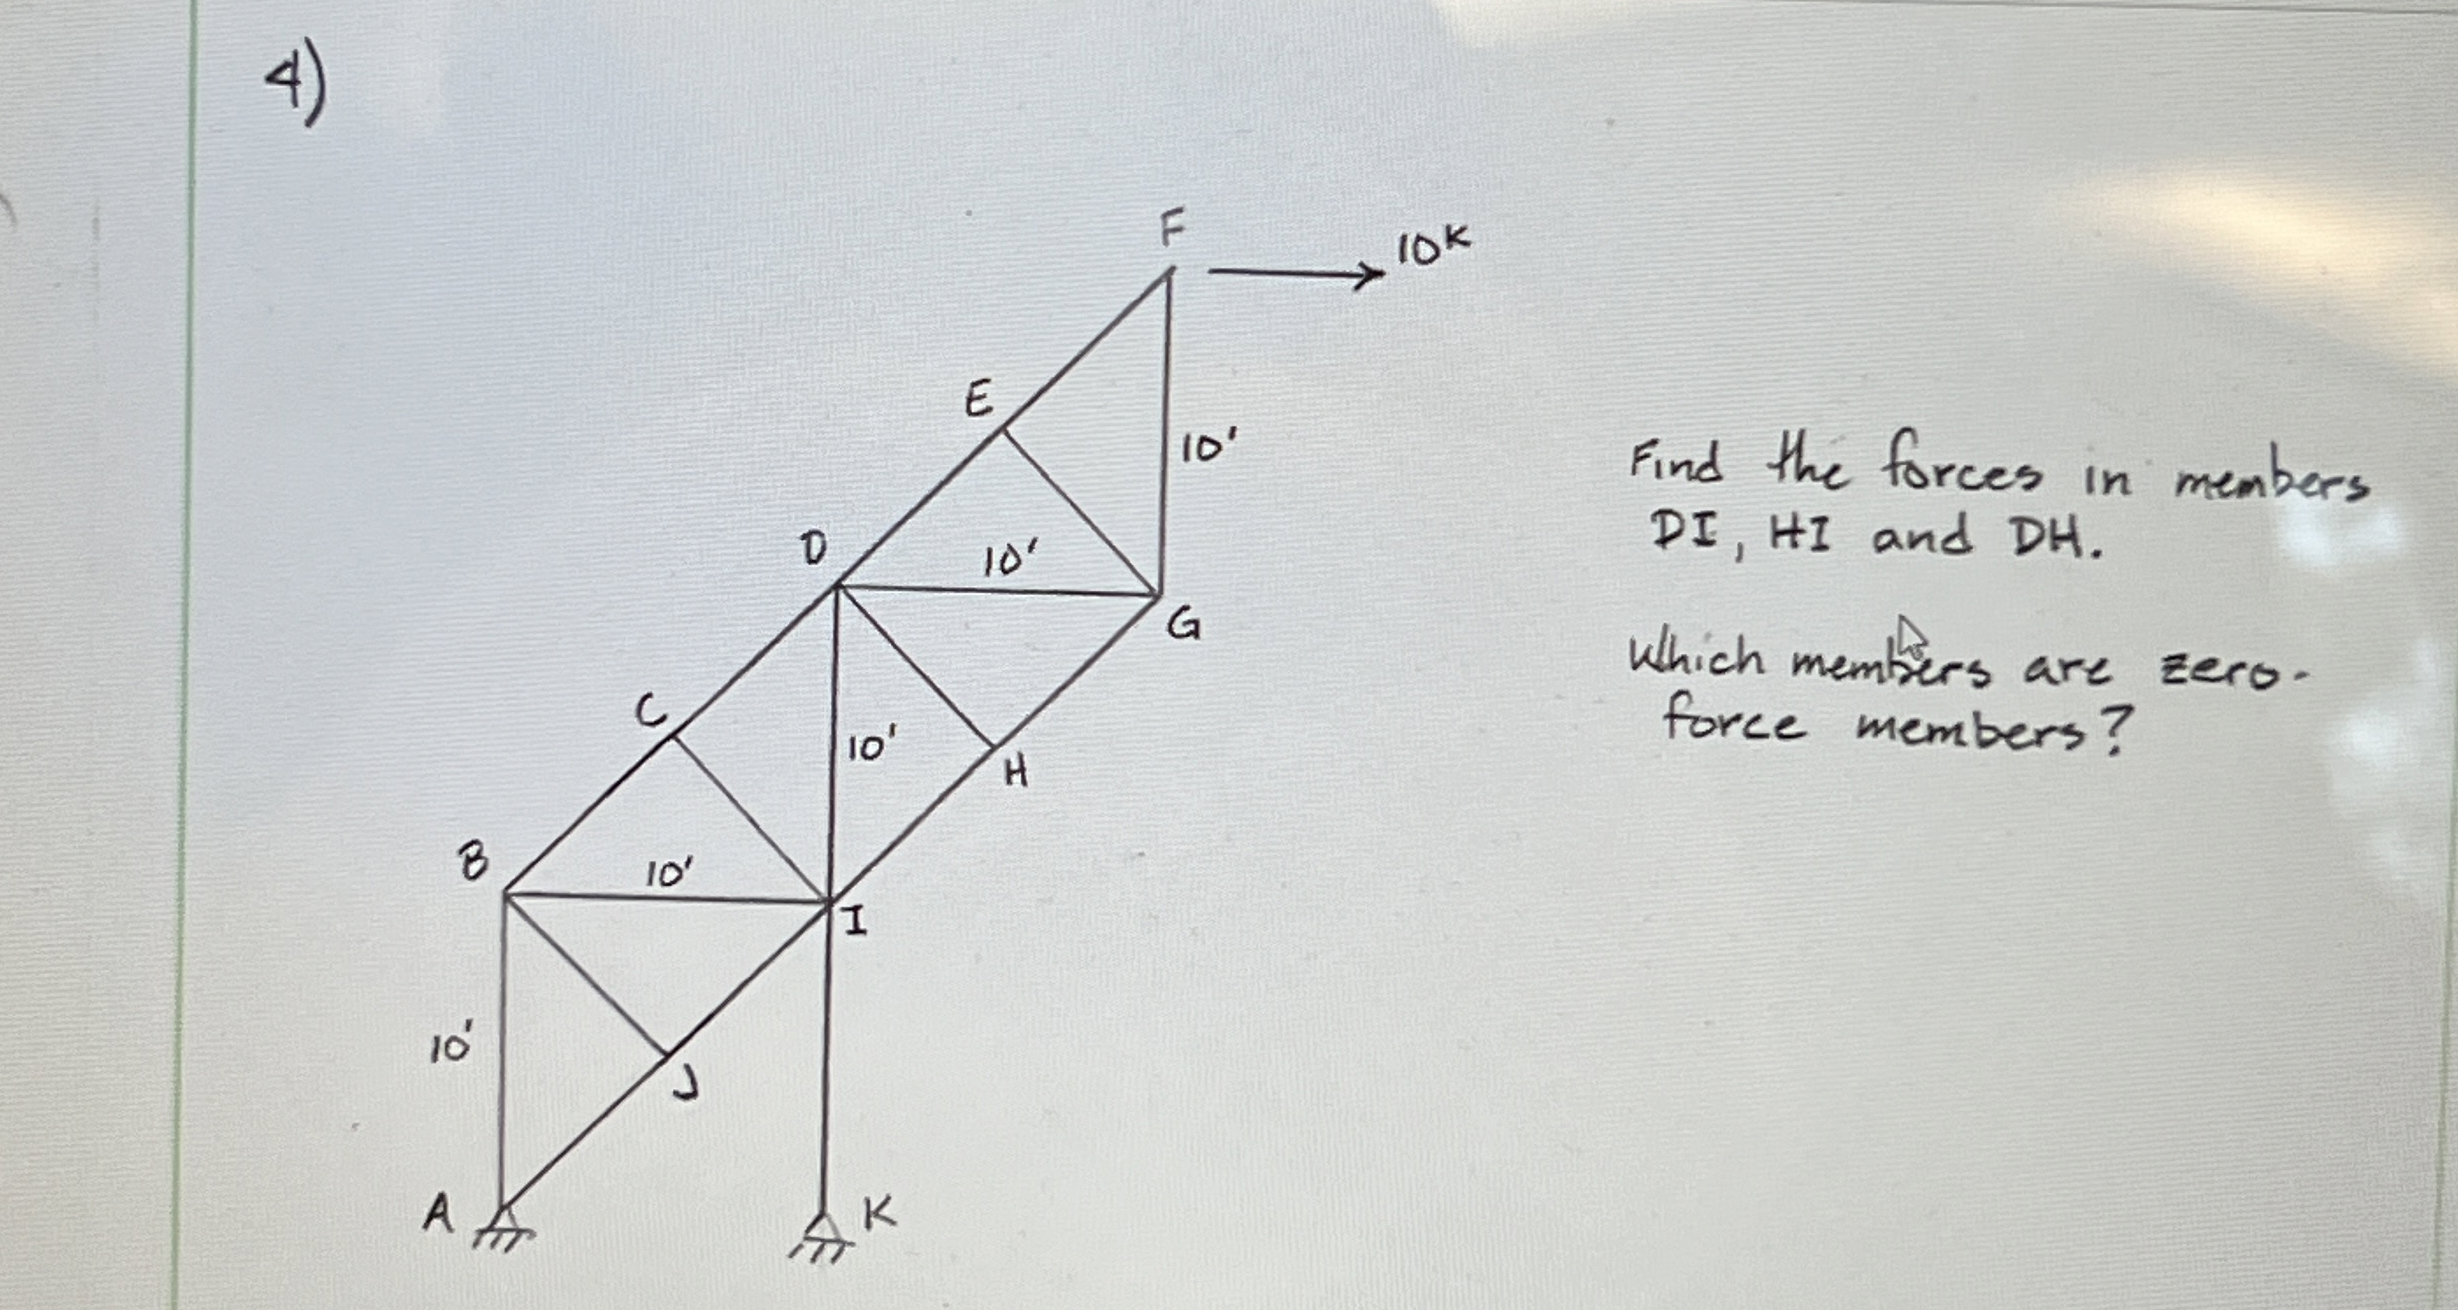 4)
F
10K
E
10'
D
10'
G
C
10'
H
B
10'
I
10'
J
A
K
Find the forces in members
DI, HI and DH.
Which members are zero-
force members?